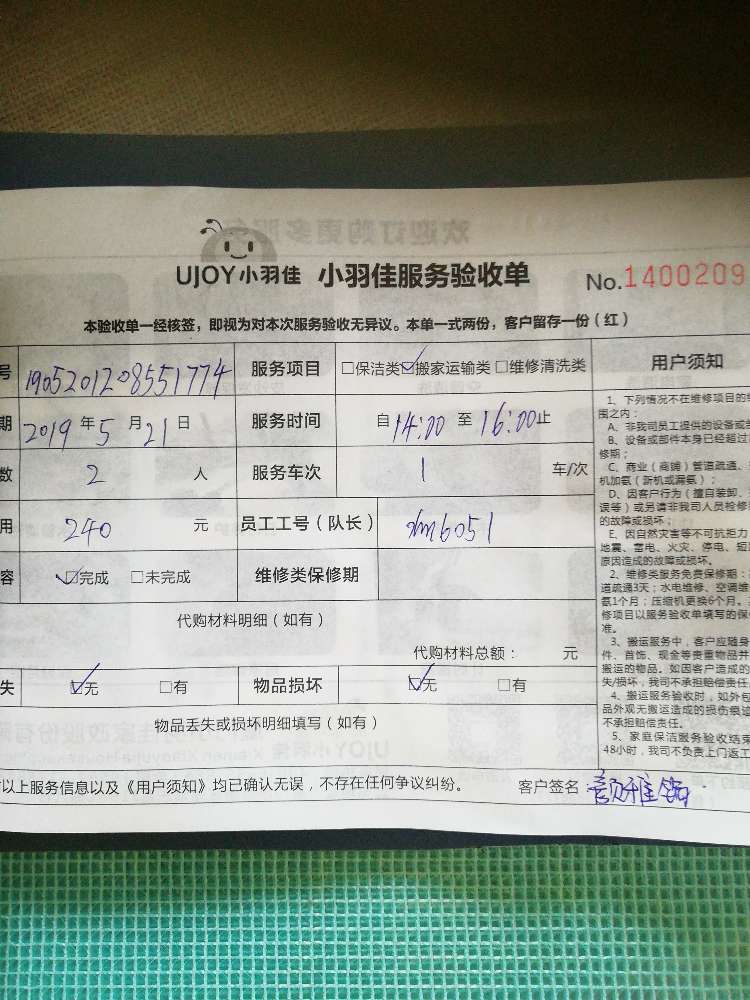 UJOY小羽佳 小羽佳服务验收单 No.1400209
本验收单一经核签，即视为对本次服务验收无异议。本单一式两份，客户留存一份（红）
号 1905201208551774 服务项目 □保洁类☑搬家运输类□维修清洗类 用户须知
期 2019年5月21日 服务时间 自14:00至16:00止
数 2 人 服务车次 1 车/次
用 240 元 员工工号（队长） xm6051
容 ☑完成 □未完成 维修类保修期
代购材料明细（如有）
代购材料总额： 元
失 ☑无 □有 物品损坏 ☑无 □有
物品丢失或损坏明细填写（如有）
以上服务信息以及《用户须知》均已确认无误，不存在任何争议纠纷。 客户签名：颜雅
1、下列情况不在维修项目的
围之内：
A、非我司员工提供的设备或
B、设备或部件本身已经超过
修期；
C、商业（商铺）管道疏通、
机加氨（新机或漏氨）；
D、因客户行为（擅自装卸、
误等）或另请非我司人员检修
的故障或损坏；
E、因自然灾害等不可抗拒力
地震、雷电、火灾、停电、短
原因造成的故障或损坏。
2、维修类服务免费保修期：
道疏通3天；水电维修、空调维
氨1个月；压缩机更换6个月。
修项目以服务验收单填写的保
准。
3、搬运服务中，客户应随身
件、首饰、现金等贵重物品并
搬运的物品。如因客户造成的
失/损坏，我司不承担赔偿责任
4、搬运服务验收时，如外包
品外观无搬运造成的损伤痕迹
不承担赔偿责任。
5、家庭保洁服务验收结束
48小时，我司不负责上门返工